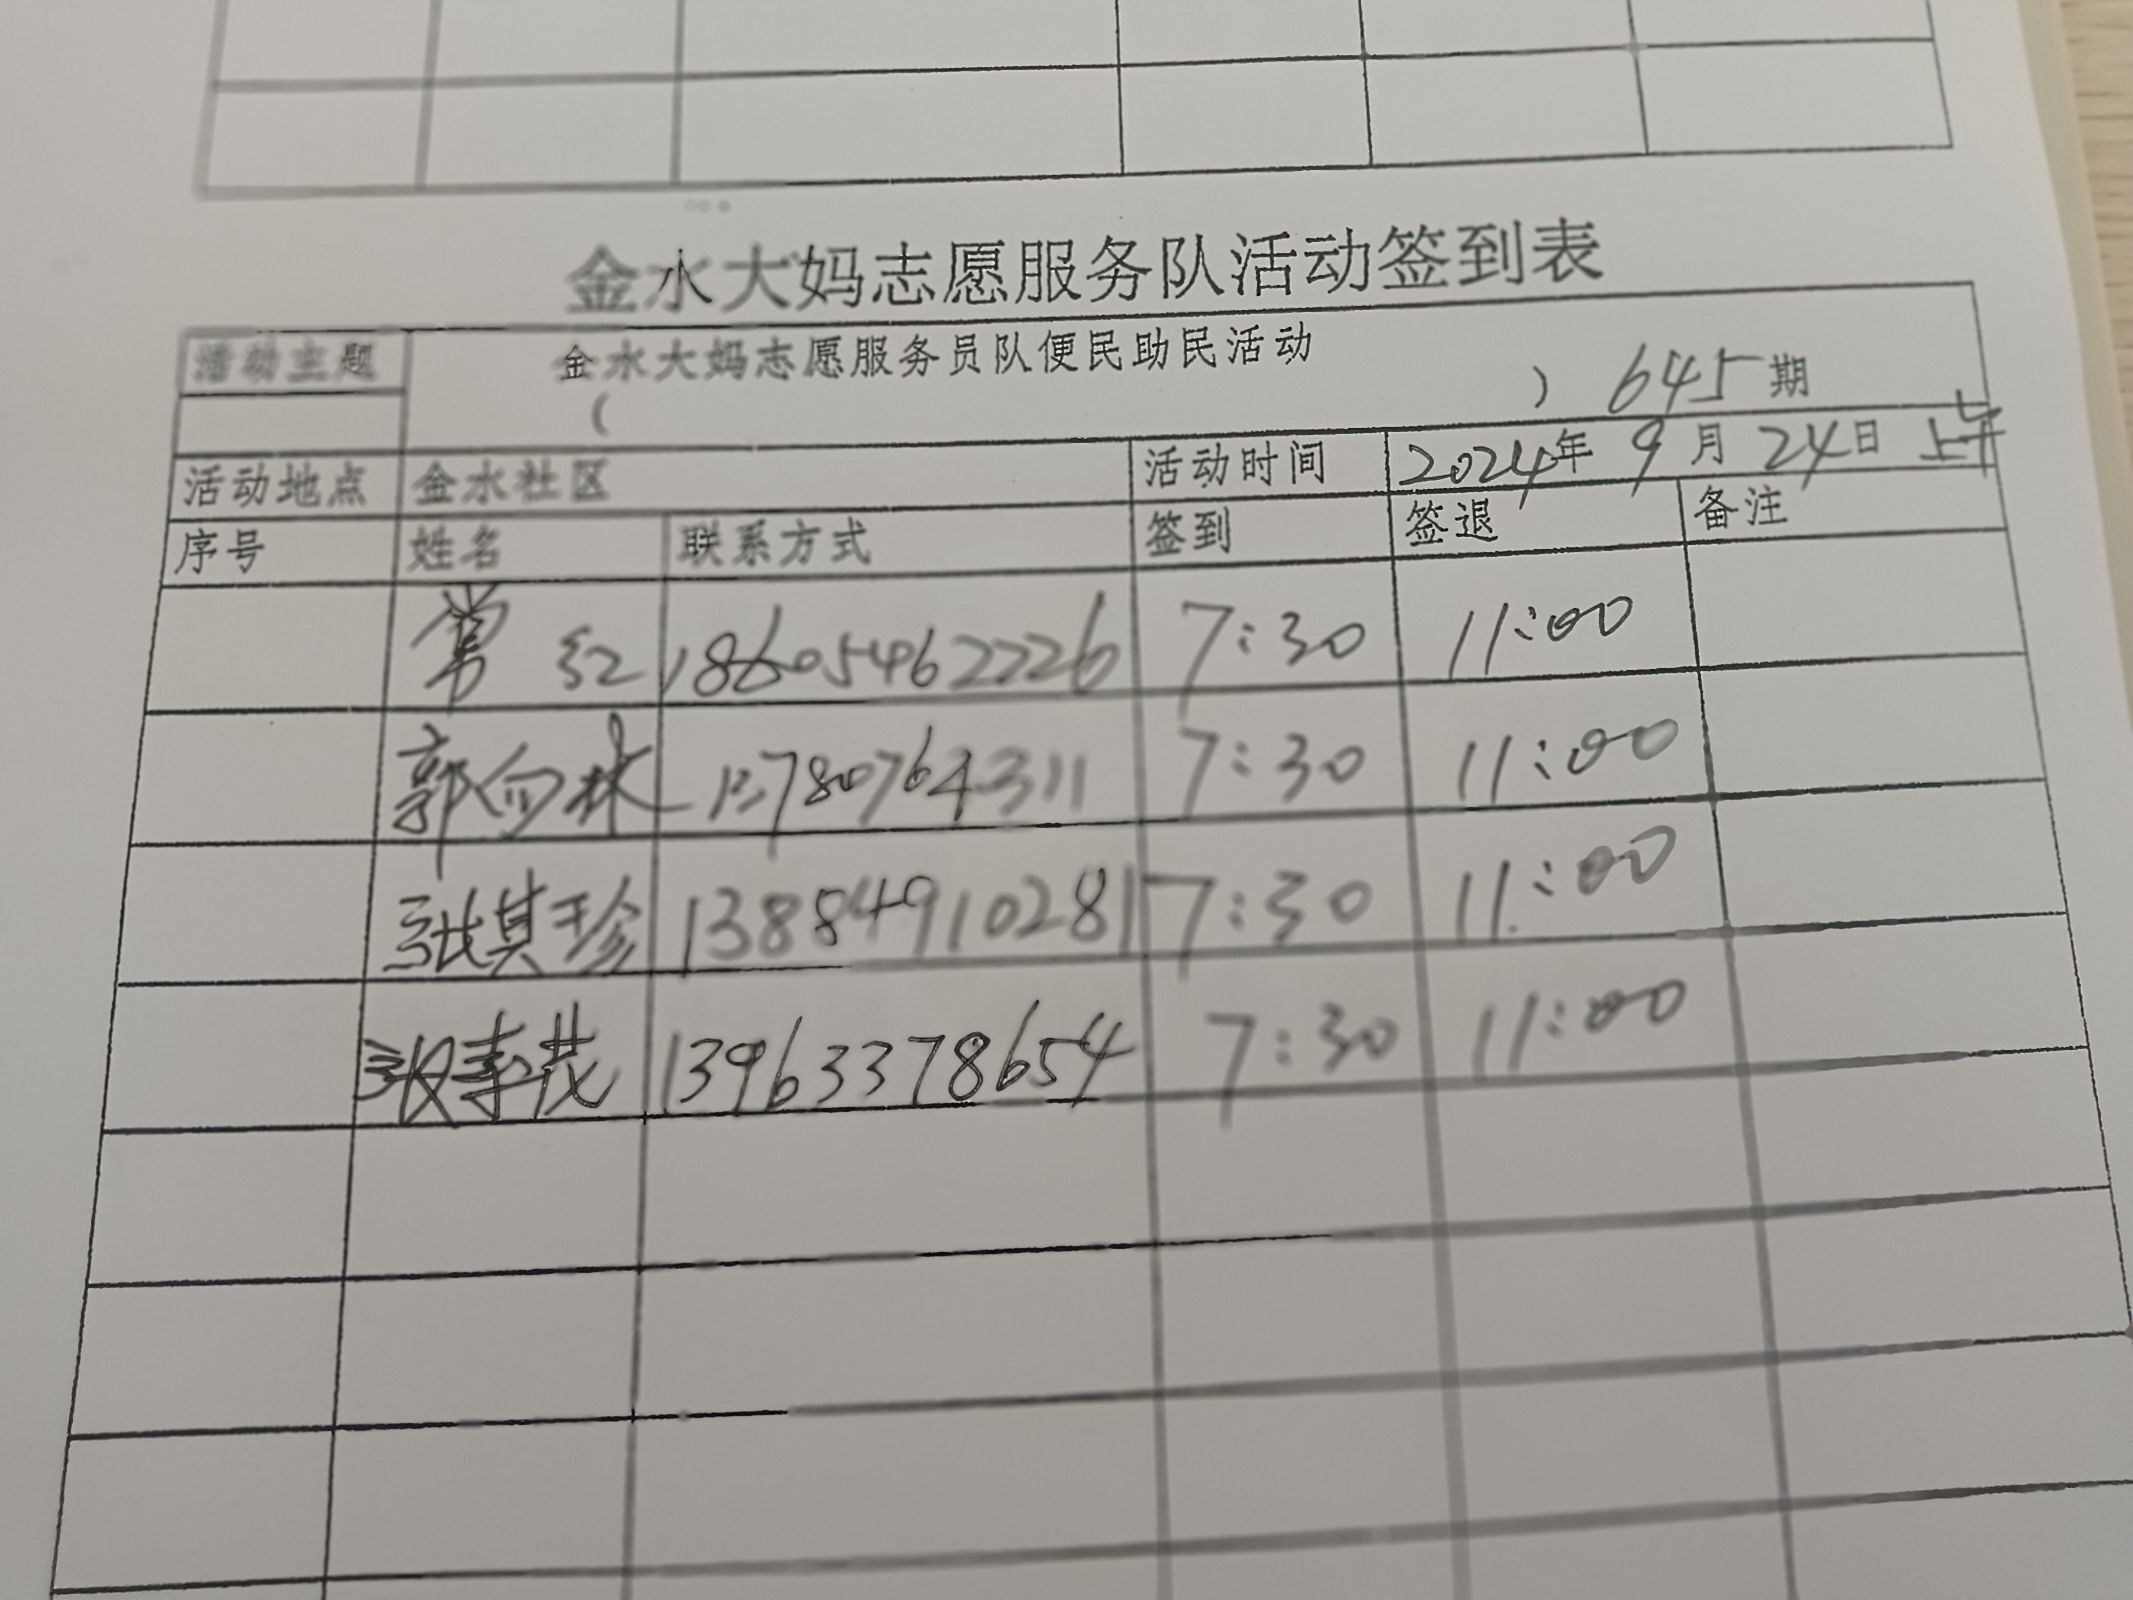 金水大妈志愿服务队活动签到表
活动主题 金水大妈志愿服务员队便民助民活动
( ) 645期
活动地点 金水社区 活动时间 2024年9月24日上午
序号 姓名 联系方式 签到 签退 备注
常红 18605462226 7:30 11:00
郭向林 13780764311 7:30 11:00
张其珍 13884910281 7:30 11:00
13963378654 7:30 11:00